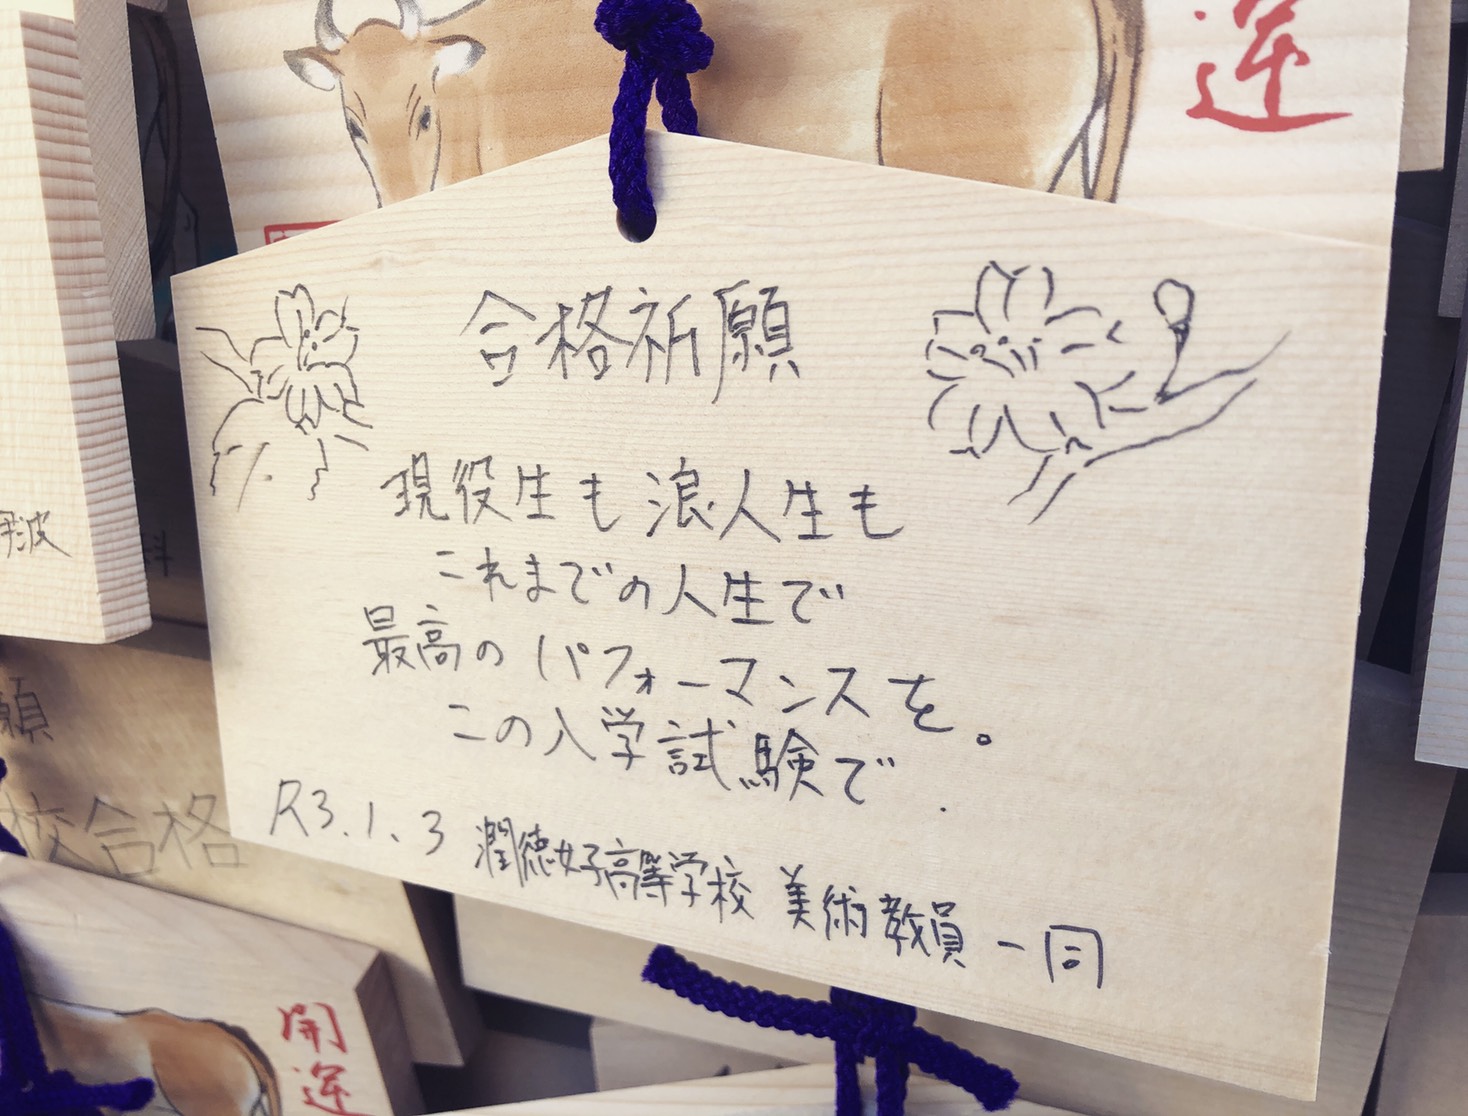 運
合格祈願
現役生も浪人生も
これまでの人生で
最高のパフォーマンスを。
この入学試験で
R3.1.3 潤徳女子高等学校 美術教員一同
願
校合格
開運